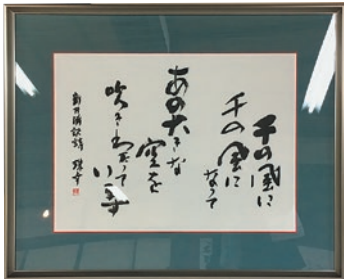 千の風に
千の風に
なって
あの大きな
空を
吹きわたって
います
新井満訳詩